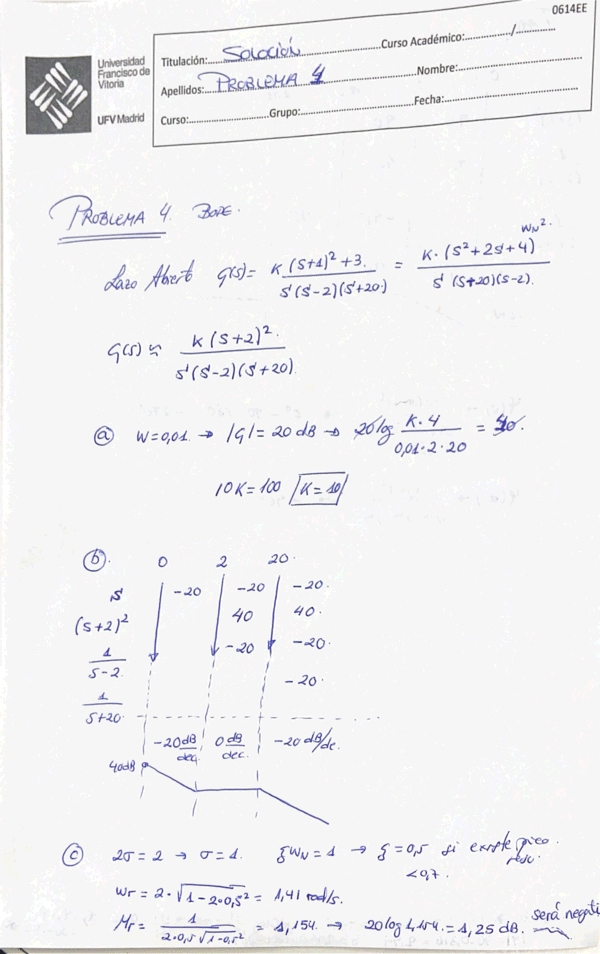 0614EE
Universidad
Francisco de
Vitoria
UFV Madrid
Titulación: SOLOCIÓN Curso Académico:............/............
Apellidos: PROBLEMA 4 Nombre:
Curso: Grupo: Fecha:
PROBLEMA 4. BODE.
Lazo Abierto G(s) = K (s+1)² + 3 / s (s-2)(s+20) = K·(s²+2s+4) / s (s+20)(s-2). Wn².
G(s) ≈ K (s+2)² / s (s-2)(s+20)
(a) W=0,01 → |G| = 20 dB → 20log K·4 / 0,01·2·20 =
10K = 100 K=10
(b). 0 2 20.
s -20 -20 -20.
(s+2)² 40 40.
1/s-2 -20 -20.
1/s+20 -20.
-20 dB/dec 0 dB/dec. -20 dB/de.
40dB
(c) 2σ = 2 → σ = 1. ξWn = 1 → ξ = 0,5 si existe pico
<0,7.
Wr = 2·√1-2·0,5² = 1,41 rad/s.
Mr = 1 / 2·0,5 √1-0,5² = 1,154. → 20log 1,154. = 1,25 dB. será negati